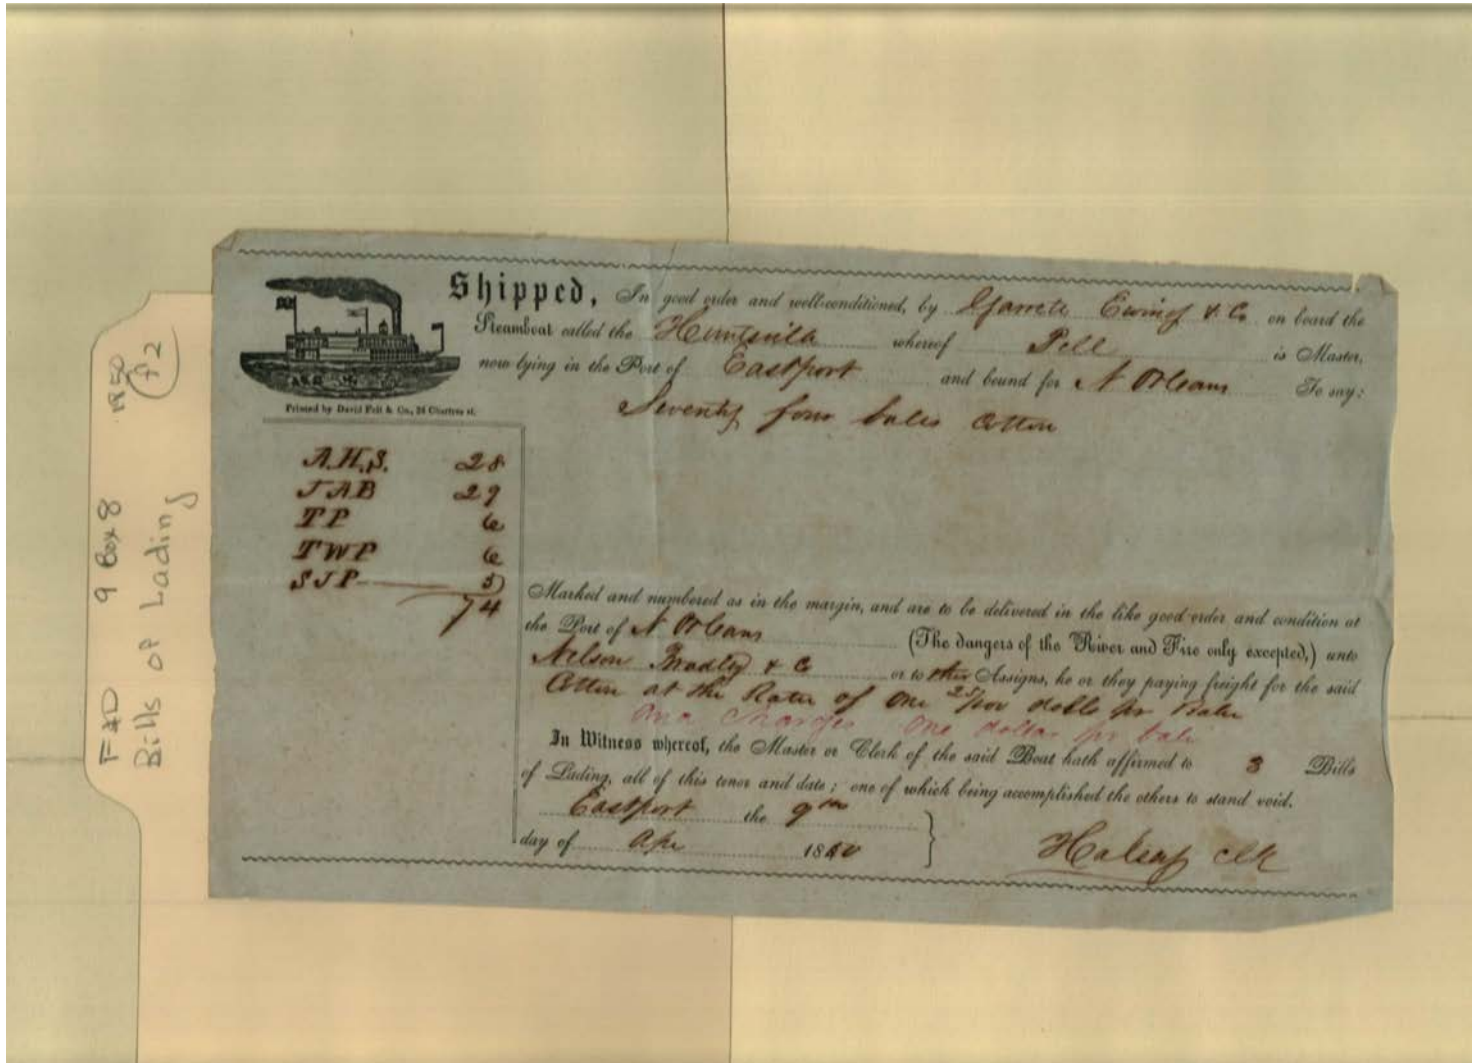 Shipped, In good order and well-conditioned, by Garrett Ewing & Co on board the
Steamboat called the Huntsville whereof Pell is Master,
now lying in the Port of Eastport and bound for N Orleans To say:
Printed by David Felt & Co., 24 Chartres st.
Seventy four bales Cotton
A.H.S. 28
JAB 29
TP 6
TWP 6
SJP 5
74
Marked and numbered as in the margin, and are to be delivered in the like good order and condition at
the Port of N Orleans (The dangers of the River and Fire only excepted,) unto
Nelson Bradley & C or to Assigns, he or they paying freight for the said
Cotton at the Rates of One 25/100 dolls pr Bale
Charges One dollar pr bale
In Witness whereof, the Master or Clerk of the said Boat hath affirmed to 3 Bills
of Lading, all of this tenor and date; one of which being accomplished the others to stand void.
Eastport the 9th
day of Apr 1850
Halsey Clk
F&D 9 Box 8 1850
Bills of Lading f2